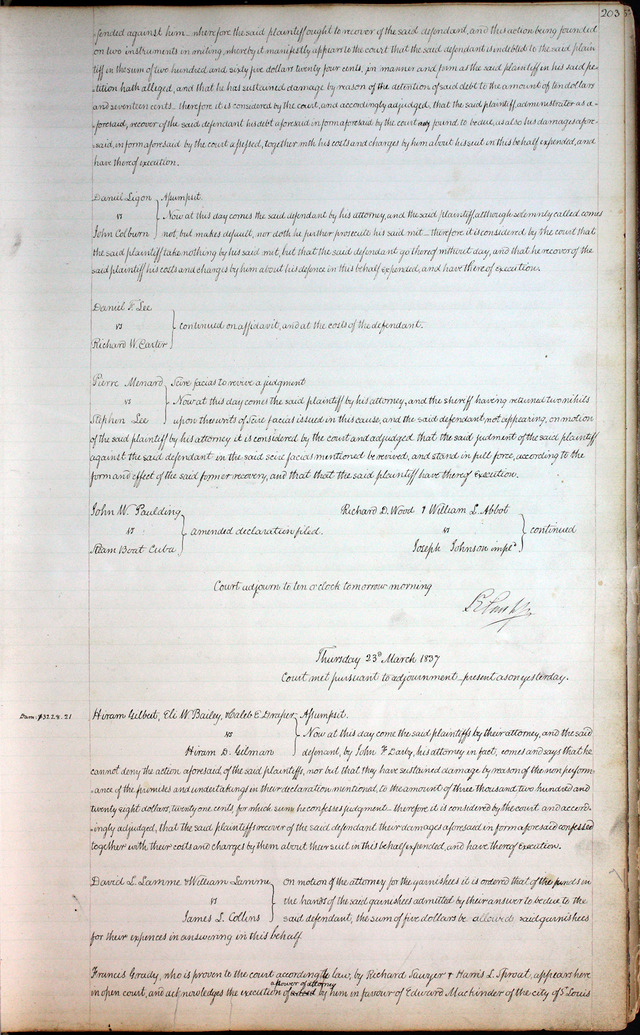 203
fended against him_ wherefore the said plaintiff ought to recover of the said defendant, and this action being founded
on two instruments in writing, whereby it manifestly appears to the court that the said defendant is indebted to the said plain-
tiff in the sum of two hundred and sixty five dollars twenty four cents, in manner and form as the said plaintiff in his said pe-
tition hath alleged, and that he has sustained damage by reason of the detention of said debt to the amount of ten dollars
and seventeen cents. therefore it is considered by the court, and accordingly adjudged, that the said plaintiff, administrator as a-
foresaid, recover of the said defendant his debt aforesaid in form aforesaid by the court found to be due, as also his damages afore-
said, in form aforesaid by the court assessed, together with his costs and charges by him about his suit in this behalf expended, and
have thereof execution.
Daniel Ligon } Assumpsit.
vs Now at this day comes the said defendant by his attorney, and the said plaintiff although solemnly called comes
John Colburn not, but makes default, nor doth he further prosecute his said suit_ therefore it is considered by the court that
the said plaintiff take nothing by his said suit, but that the said defendant go thereof without day, and that he recover of the
said plaintiff his costs and charges by him about his defence in this behalf expended, and have thereof execution.
Daniel F. Lee
vs } continued on affidavit, and at the costs of the defendant.
Richard W. Carter
Pierre Menard } Scire facias to revive a judgment
vs Now at this day comes the said plaintiff by his attorney, and the sheriff having returned two nihils
Stephen Lee upon the writs of Scire facias issued in this cause, and the said defendant not appearing, on motion
of the said plaintiff by his attorney it is considered by the court and adjudged that the said judgment of the said plaintiff
against the said defendant in the said scire facias mentioned be revived, and stand in full force, according to the
form and effect of the said former recovery, and that that the said plaintiff have thereof execution.
John W. Paulding
vs } amended declaration filed.
Steam Boat Cuba
Richard D. Wood & William L. Abbot
vs } continued
Joseph Johnson impl^d
Court adjourn to ten o'clock tomorrow morning
Thursday 23^d March 1837
Court met pursuant to adjournment_ present as on yesterday.
Dam. $3228.21
Hiram Gilbert, Eli W. Bailey, & Caleb E. Draper } Assumpsit.
vs Now at this day come the said plaintiffs by their attorney, and the said
Hiram D. Gilman defenant, by John F. Darby, his attorney in fact, comes and says that he
cannot deny the action aforesaid of the said plaintiffs, nor but that they have sustained damage by reason of the non perform-
ance of the promises and undertakings in their declaration mentioned, to the amount of three thousand two hundred and
twenty eight dollars, twenty one cents, for which sum he confesses judgment_ therefore it is considered by the court and accord-
ingly adjudged, that the said plaintiffs recover of the said defendant their damages aforesaid in form aforesaid confessed
together with their costs and charges by them about their suit in this behalf expended, and have thereof execution.
David L. Lamme & William Lamme } on motion of the attorney for the garnishees it is ordered that of the funds in
vs the hands of the said garnishees admitted by their answer to be due to the
James L. Collins said defendant, the sum of five dollars be allowed said garnishees
for their expences in answering in this behalf
Francis Grady, who is proven to the court according to law, by Richard Sawyer & Harris L. Sproat, appears here
a power of attorney
in open court, and acknowledges the execution of by him in favour of Edward Machinder of the city of S^t Louis